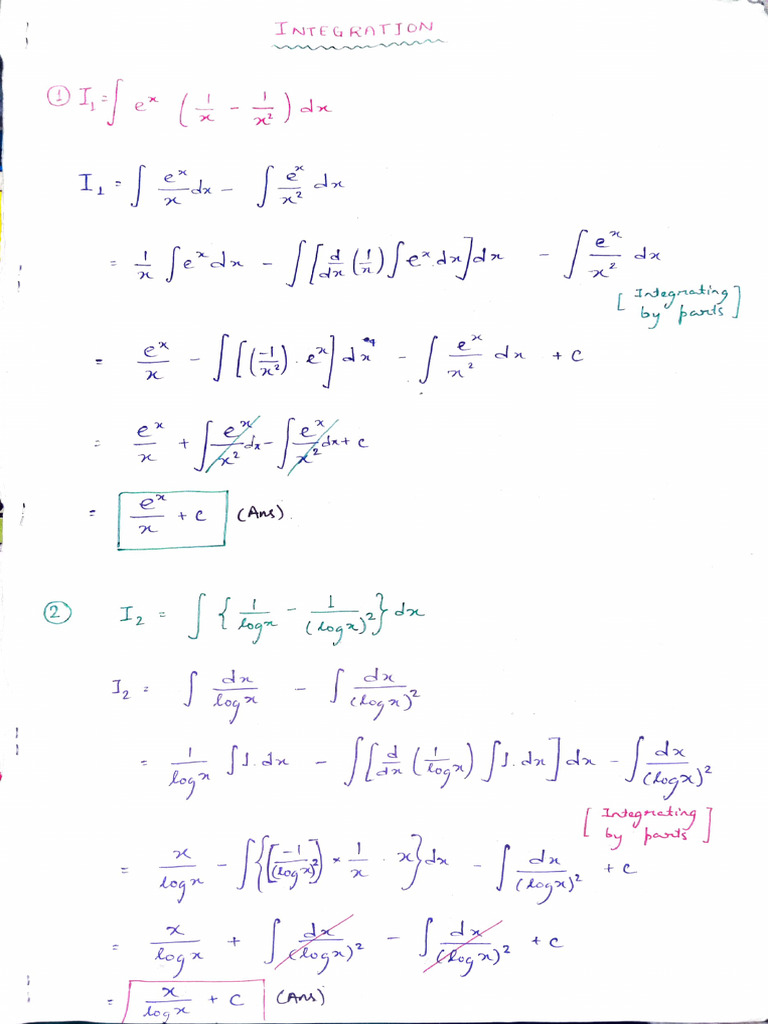 INTEGRATION
① I₁ = ∫ eˣ (1/x - 1/x²) dx
I₁ = ∫ eˣ/x dx - ∫ eˣ/x² dx
= 1/x ∫ eˣ dx - ∫ [d/dx (1/x) ∫ eˣ dx] dx - ∫ eˣ/x² dx
[Integrating by parts]
= eˣ/x - ∫ [(-1/x²) · eˣ] dx - ∫ eˣ/x² dx + c
= eˣ/x + ∫ eˣ/x² dx - ∫ eˣ/x² dx + c
= eˣ/x + c (Ans).
② I₂ = ∫ {1/logx - 1/(logx)²} dx
I₂ = ∫ dx/logx - ∫ dx/(logx)²
= 1/logx ∫ 1. dx - ∫ [d/dx (1/logx) ∫ 1. dx] dx - ∫ dx/(logx)²
[Integrating by parts]
= x/logx - ∫ {[-1/(logx)²] × 1/x · x} dx - ∫ dx/(logx)² + c
= x/logx + ∫ dx/(logx)² - ∫ dx/(logx)² + c
= x/logx + c (Ans)